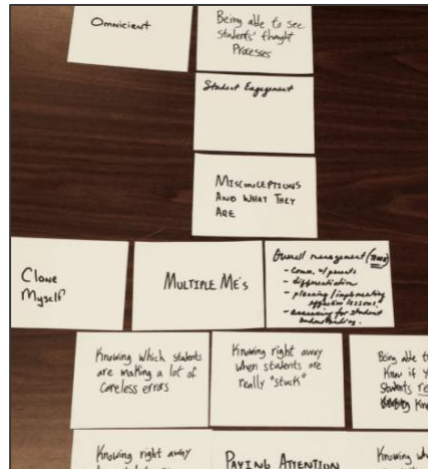 Omnicient
Being able to see
students' thought
Processes
Student Engagement
MISCONCEPTIONS
AND WHAT THEY
ARE
Clone
Myself
MULTIPLE ME'S
Overall management (TIME)
- Comm. w/ parents
- differentiation
- planning/implementing
effective lessons
- assessing for student
understanding.
Knowing which students
are making a lot of
careless errors
Knowing right away
when students are
really "stuck"
Being able t
Know if y
Students re
Kno
Knowing right away
PAYING ATTENTION
Knowing wh